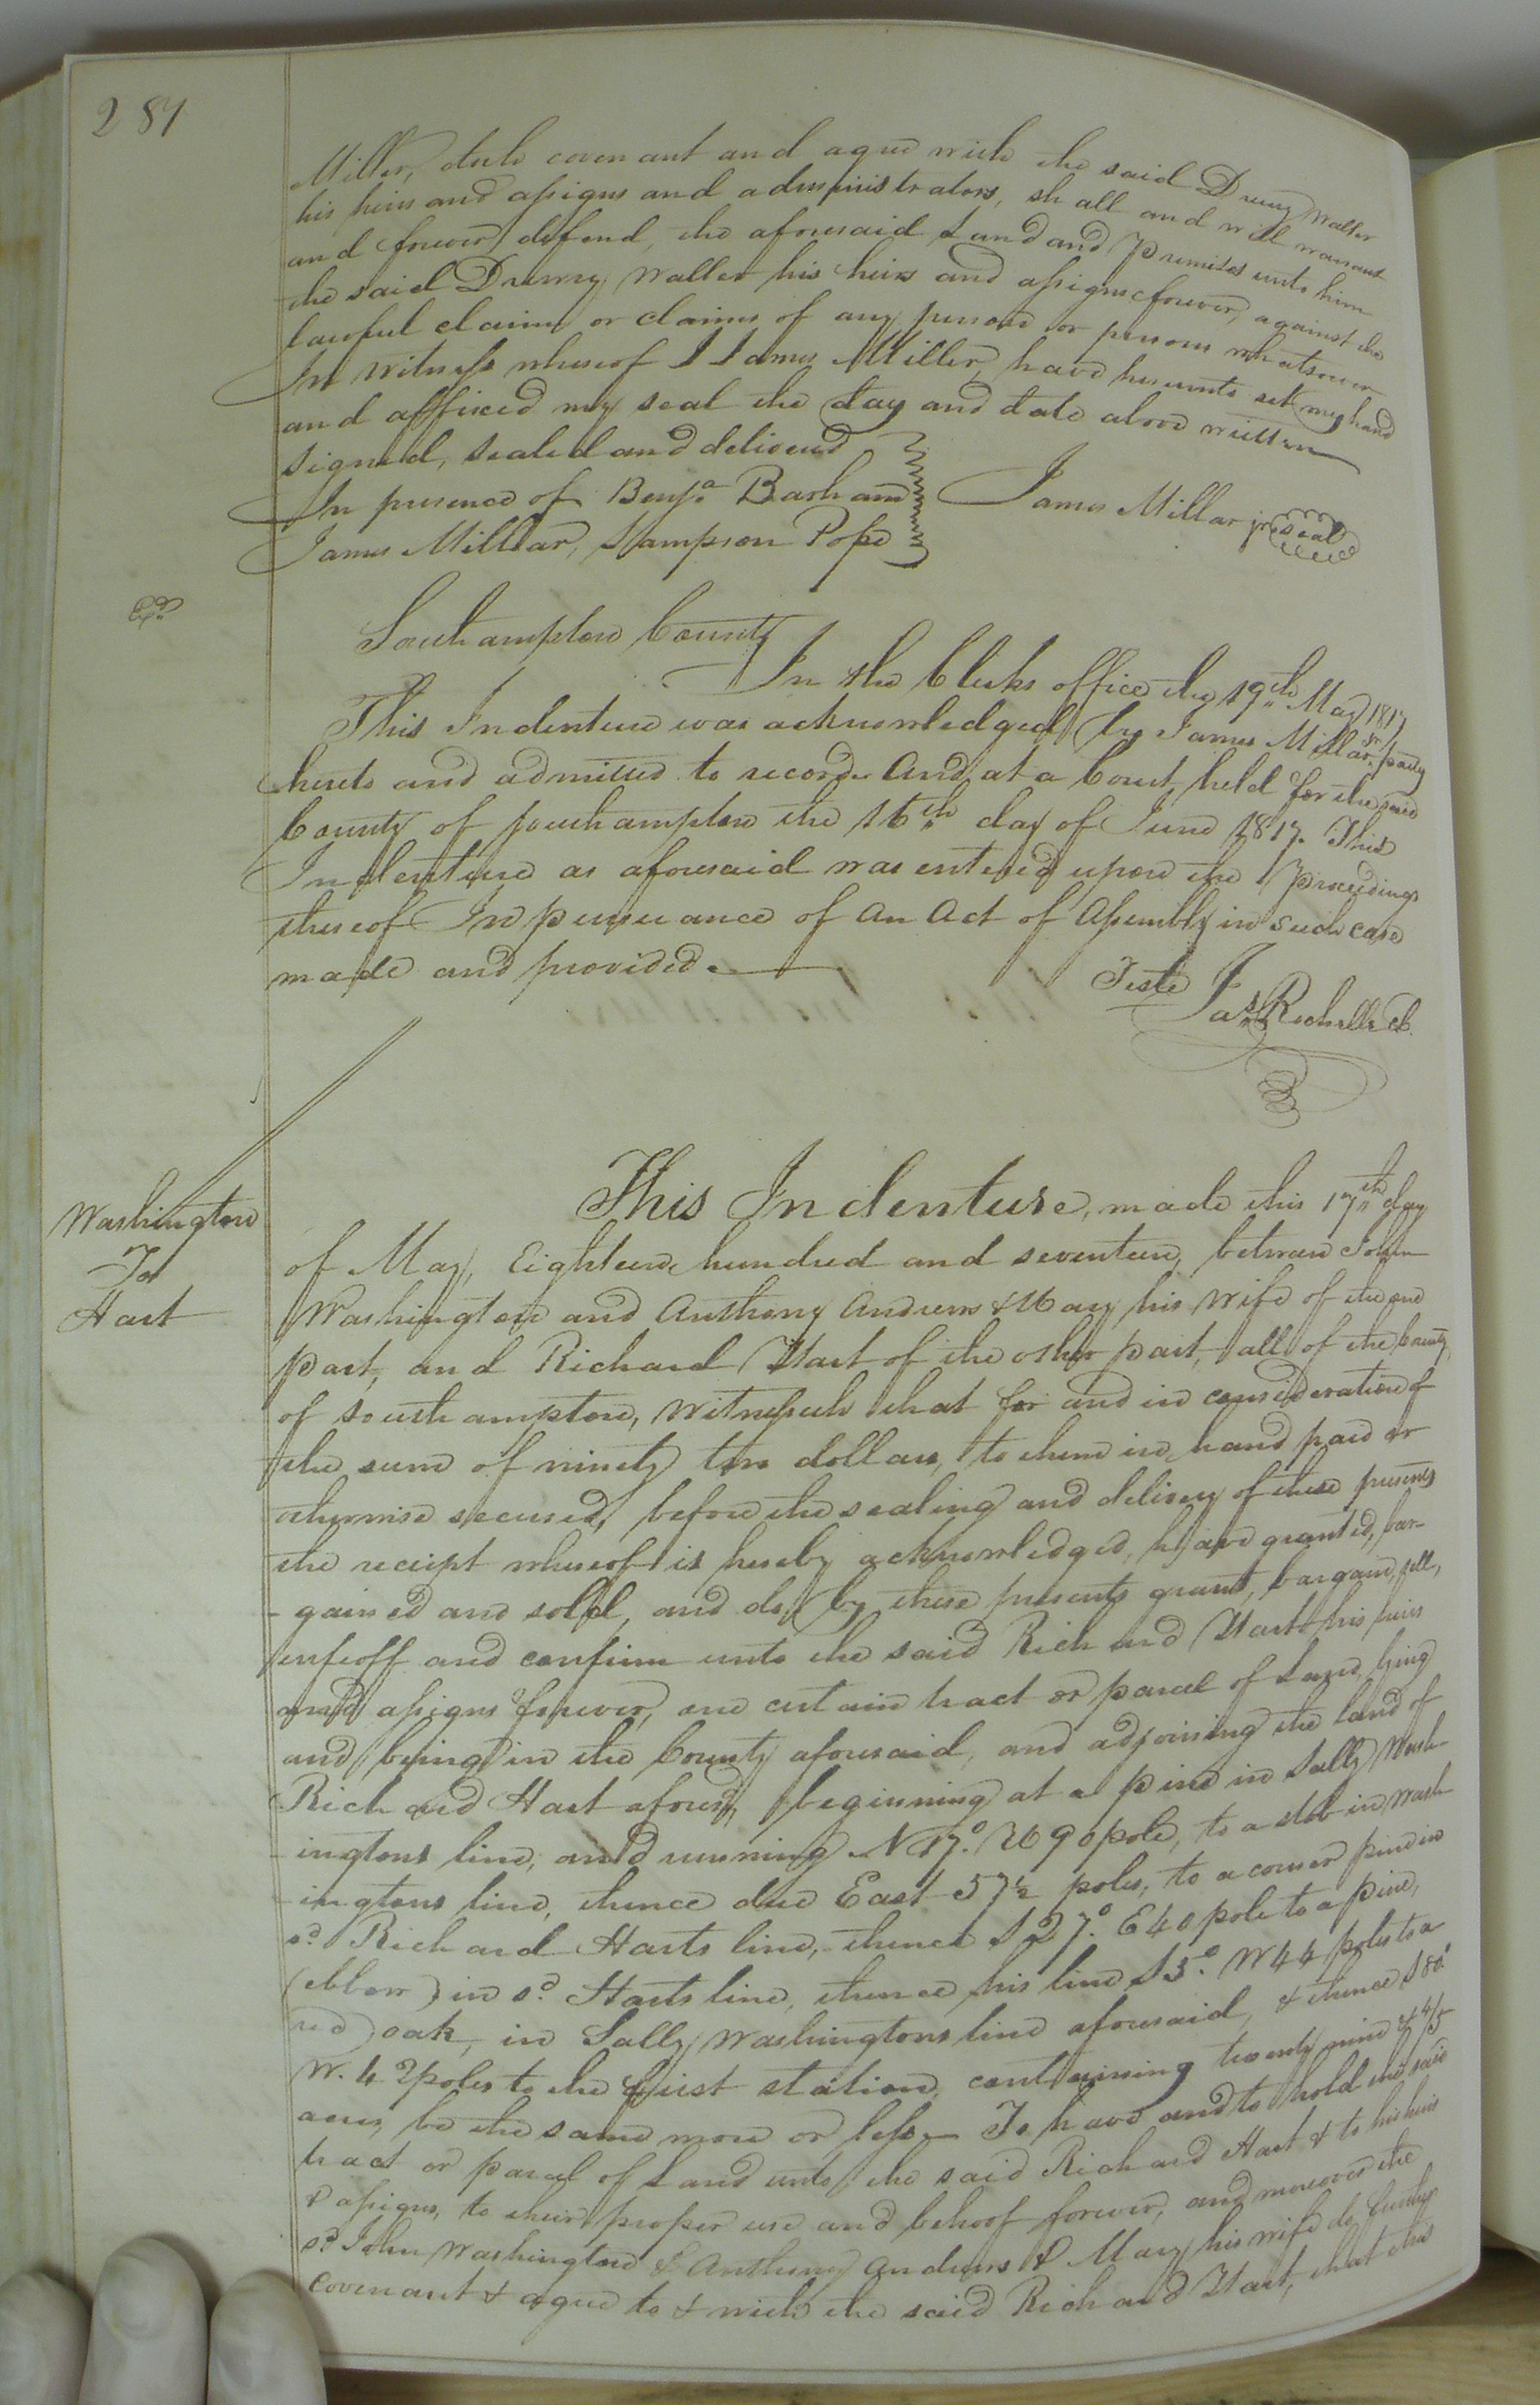 287
Miller, doth covenant and agree with the said Drewry Waller
his heirs and assigns and administrators, shall and will warrant
and forever defend, the aforesaid Land and premises unto him
the said Drewry Waller his heirs and assigns forever, against the
lawful claim or claims of any person or persons whatsoever
In witness whereof I James Miller, have hereunto set my hand
and affixed my seal the day and date above written
Signed, sealed and delivered
In presence of Benja. Barham
James Millar, Sampson Pope
James Millar jr seal
Southampton County
In the Clerks office the 19th May 1817
This Indenture was acknowledged by James Millar jr. party
hereto and admitted to record. And at a Court held for the said
County of Southampton the 16th day of June 1817. This
Indenture as aforesaid was entered upon the proceedings
thereof In pursuance of An Act of Assembly in such case
made and provided.
Teste
Jas. Rochelle cl.
Washington
To
Hart
This Indenture, made this 17th day
of May, Eighteen hundred and seventeen, between John
Washington and Anthony Andrews & Mary his wife of the one
part, and Richard Hart of the other part, all of the County
of Southampton, Witnesseth that for and in consideration of
the sum of ninety two dollars, to them in hand paid or
otherwise secured, before the sealing and delivery of these presents
the receipt whereof is hereby acknowledged, have granted, bar-
-gained and sold, and do by these presents grant, bargain, sell,
enfeoff and confirm unto the said Richard Hart his heirs
and assigns forever, one certain tract or parcel of Land, lying
and being in the County aforesaid, and adjoining the land of
Richard Hart aforesd, beginning at a pine in Sally Wash-
-ingtons line, and running N 17.° W 90 pole, to a stob in Wash-
-ingtons line, thence due East 57½ poles, to a corner pine in
sd. Richard Harts line, thence S 27.° E 40 pole to a pine,
in sd. Harts line, thence his line S 3.° W 44 poles to a
red oak, in Sally Washingtons line aforesaid, & thence S 80.°
W. 42 poles to the first station, containing twenty nine & 4/5
acres, be the same more or less. To have and to hold the said
tract or parcel of Land unto the said Richard Hart & to his heirs
& assigns, to their proper use and behoof forever, and moreover the
sd. John Washington & Anthony Andrews & Mary his wife do further
covenant & agree to & with the said Richard Hart, that the